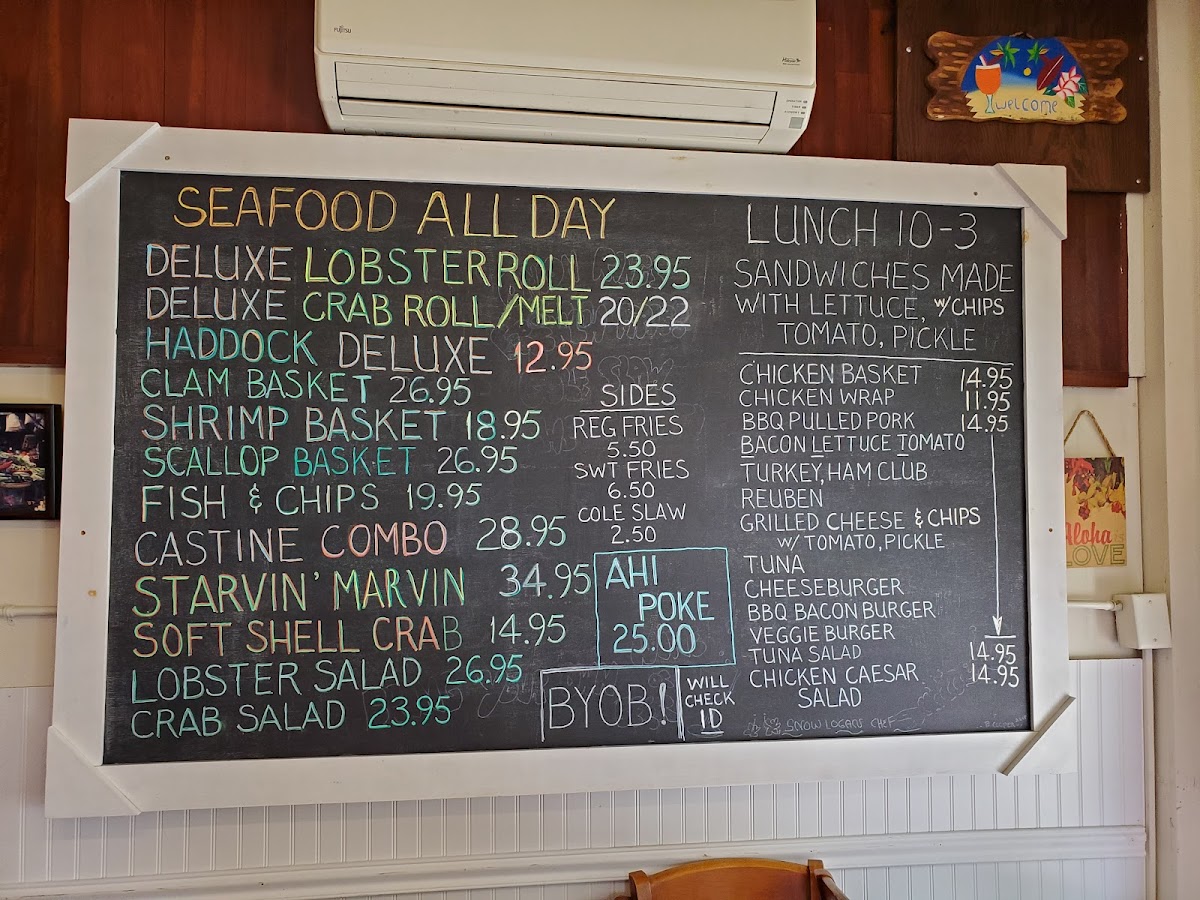 FUJITSU
welcome
SEAFOOD ALL DAY
DELUXE LOBSTER ROLL 23.95
DELUXE CRAB ROLL/MELT 20/22
HADDOCK DELUXE 12.95
CLAM BASKET 26.95
SHRIMP BASKET 18.95
SCALLOP BASKET 26.95
FISH & CHIPS 19.95
CASTINE COMBO 28.95
STARVIN' MARVIN 34.95
SOFT SHELL CRAB 14.95
LOBSTER SALAD 26.95
CRAB SALAD 23.95
SIDES
REG FRIES
5.50
SWT FRIES
6.50
COLE SLAW
2.50
AHI
POKE
25.00
BYOB!
WILL
CHECK
ID
LUNCH 10-3
SANDWICHES MADE
WITH LETTUCE, W/CHIPS
TOMATO, PICKLE
CHICKEN BASKET 14.95
CHICKEN WRAP 11.95
BBQ PULLED PORK 14.95
BACON LETTUCE TOMATO
TURKEY, HAM CLUB
REUBEN
GRILLED CHEESE & CHIPS
W/ TOMATO, PICKLE
TUNA
CHEESEBURGER
BBQ BACON BURGER
VEGGIE BURGER
TUNA SALAD 14.95
CHICKEN CAESAR 14.95
SALAD
Aloha
is
LOVE